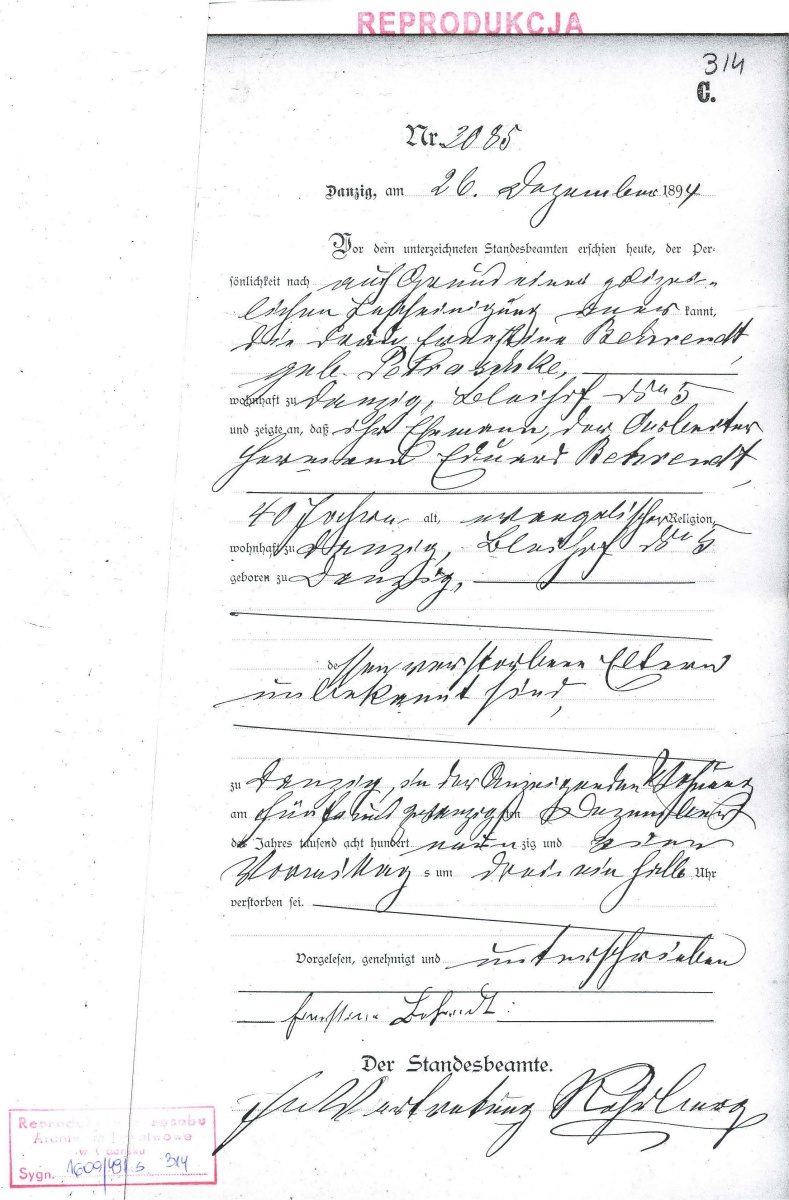 REPRODUKCJA
314
C.
Nr. 2085
Danzig, am 26. Dezember 1894
Vor dem unterzeichneten Standesbeamten erschien heute, der Per-
sönlichkeit nach auf Grund einer polizei-
lichen Bescheinigung aner kannt,
die Frau Ernestine Behrendt,
geb. Petraschke,
wohnhaft zu Danzig, Bleihof No 5
und zeigte an, daß ihr Ehemann, der Arbeiter
Hermann Eduard Behrendt,
40 Jahre alt, evangelischer Religion,
wohnhaft zu Danzig, Bleihof No 5
geboren zu Danzig,
dessen verstorbene Eltern
unbekannt sind,
zu Danzig, in der Anzeigenden Wohnung
am fünf und zwanzigsten Dezember
des Jahres tausend acht hundert neunzig und vier
Vormittags um drei ein halb Uhr
verstorben sei.
Vorgelesen, genehmigt und unterschrieben
Ernstine Behrendt.
Der Standesbeamte.
In Vertretung
w Gdańsku
Sygn. 1609/491 s 314